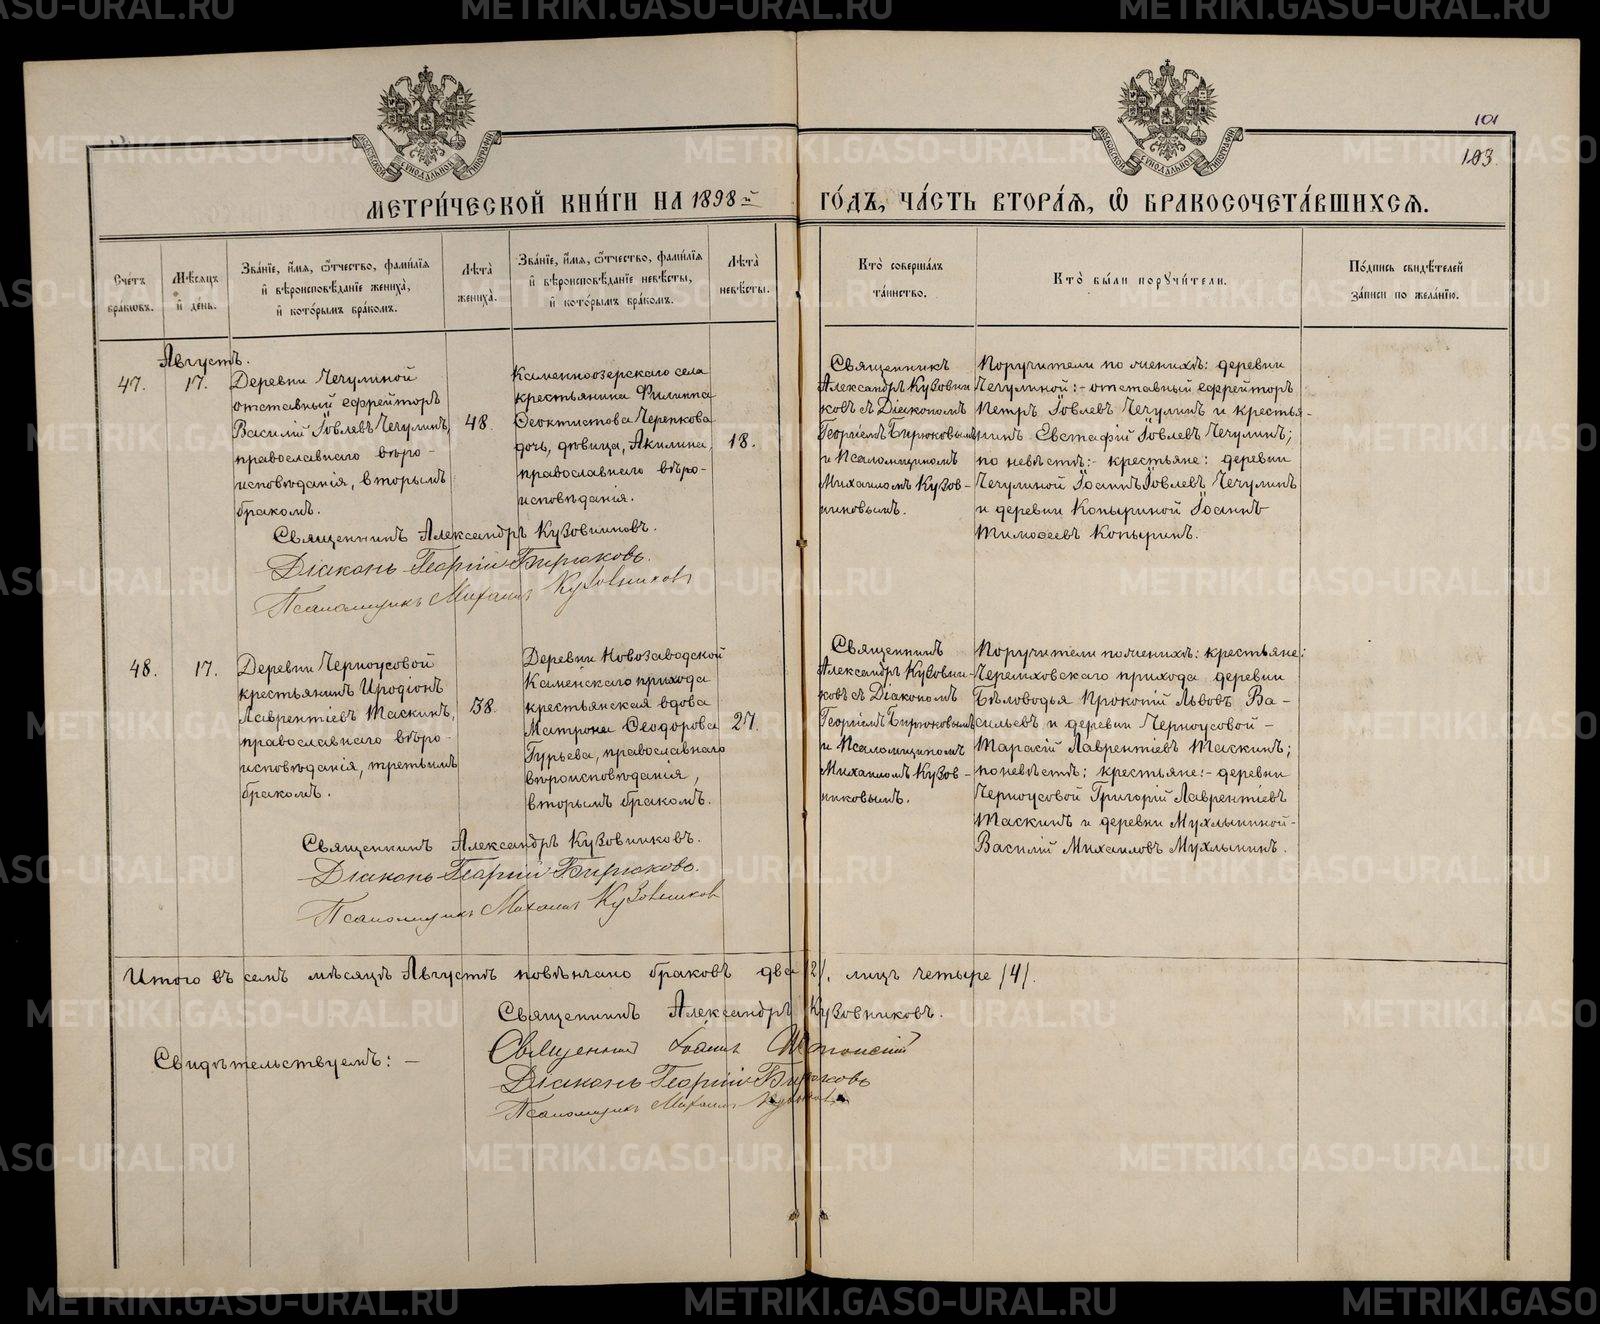 101
103.
МЕТРИ́ЧЕСКОЙ КНИ́ГИ НА 1898 й ГО́ДЪ, ЧА́СТЬ ВТОРА́Я, Ѡ҆ БРАКОСОЧЕТА́ВШИХСЯ.
Сче́тъ бра́ковъ.
Мѣ́сяцъ и҆ де́нь.
Зва́нїе, и҆́мя, ѻ҆́тчество, фами́лїя
и҆ вѣроисповѣ́данїе жениха̀,
и҆ кото́рымъ бра́комъ.
Лѣ́та̀ жениха̀.
Зва́нїе, и҆́мя, ѻ҆́тчество, фами́лїя
и҆ вѣроисповѣ́данїе невѣ́сты,
и҆ кото́рымъ бра́комъ.
Лѣ́та̀ невѣ́сты.
Кто̀ соверша́лъ
та́инство.
Кто̀ бы́ли поручи́тели.
По́дпись свидѣ́телей
за́писи по жела́нїю.
Августъ.
47.
17.
Деревни Чечулиной
отставный ефрейторъ
Василій Іовлевъ Чечулинъ,
православнаго вѣро-
исповѣданія, вторымъ
бракомъ.
48.
Каменноозерскаго села
крестьянина Филиппа
Ѳеоктистова Черепкова
дочь, дѣвица, Акилина,
православнаго вѣро-
исповѣданія.
18.
Священникъ
Александръ Кузовни
ковъ съ Діакономъ
Георгіемъ Бирюковымъ
и Псаломщикомъ
Михаиломъ Кузов-
никовымъ.
Поручители по женихѣ: деревни
Чечулиной:- отставный ефрейторъ
Петръ Іовлевъ Чечулинъ и крестья-
нинъ Евстафій Іовлевъ Чечулинъ;
по невѣстѣ:- крестьяне: деревни
Чечулиной Іоаннъ Іовлевъ Чечулинъ
и деревни Копыриной Іоаннъ
Тимоѳеевъ Копыринъ.
Священникъ Александръ Кузовниковъ.
Діаконъ Георгій Бирюковъ.
Псаломщикъ Михаилъ Кузовниковъ
48.
17.
Деревни Черноусовой
крестьянинъ Иродіонъ
Лаврентіевъ Таскинъ,
православнаго вѣро-
исповѣданія, третьимъ
бракомъ.
38.
Деревни Новозаводской
Каменскаго прихода
крестьянская вдова
Матрона Ѳеодорова
Гурьева, православнаго
вѣроисповѣданія,
вторымъ бракомъ.
27.
Священникъ
Александръ Кузовни-
ковъ съ Діакономъ
Георгіемъ Бирюковымъ
и Псаломщикомъ
Михаиломъ Кузов-
никовымъ.
Поручители по женихѣ: крестьяне:
Черемховскаго прихода деревни
Бѣловодья Прокопій Львовъ Ва-
сильевъ и деревни Черноусовой -
Тарасій Лаврентіевъ Таскинъ;
по невѣстѣ: крестьяне:- деревни
Черноусовой Григорій Лаврентіевъ
Таскинъ и деревни Мухлыниной-
Василій Михаиловъ Мухлынинъ.
Священникъ Александръ Кузовниковъ.
Діаконъ Георгій Бирюковъ.
Псаломщикъ Михаилъ Кузовниковъ
Итого въ семъ мѣсяцѣ Августѣ повѣнчано браковъ два /2/, лицъ четыре /4/.
Священникъ Александръ Кузовниковъ.
Свидѣтельствуемъ: -
Священникъ Іоаннъ
Діаконъ Георгій Бирюковъ
Псаломщикъ Михаилъ Кузовниковъ
METRIKI.GASO-URAL.RU